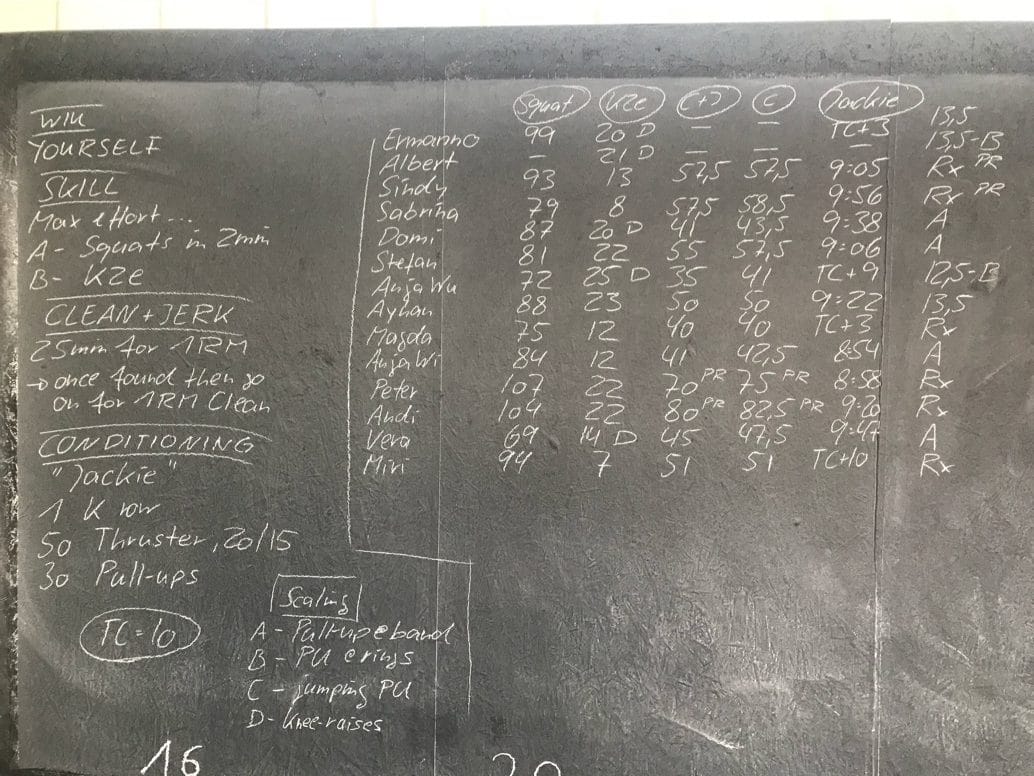 WU
YOURSELF
SKILL
Max effort...
A - Squats in 2min
B - K2e
CLEAN + JERK
25min for 1RM
→ once found then go
on for 1RM Clean
CONDITIONING
"Jackie"
1 K row
50 Thruster, 20/15
30 Pull-ups
TC = 10
Squat K2e C+J C Jackie
Ermanno 99 20 D – – TC+3 13,5
Albert – 21 D – – – 13,5-B
Sindy 93 13 57,5 57,5 9:05 Rx PR
Sabrina 79 8 57,5 58,5 9:56 Rx PR
Domi 87 20 D 41 43,5 9:38 A
Stefan 81 22 55 57,5 9:06 A
Anja Wu 72 25 D 35 41 TC+9 12,5-B
Ayhan 88 23 50 50 9:22 13,5
Magda 75 12 40 40 TC+3 Rx
Anja Wi 84 12 41 42,5 8:54 A
Peter 107 22 70 PR 75 PR 8:58 Rx
Andi 104 22 80 PR 82,5 PR 9:20 Rx
Vera 69 14 D 45 47,5 9:47 A
Miri 94 7 51 51 TC+10 Rx
Scaling
A - Pull-up @ band
B - PU @ rings
C - jumping PU
D - Knee-raises
16